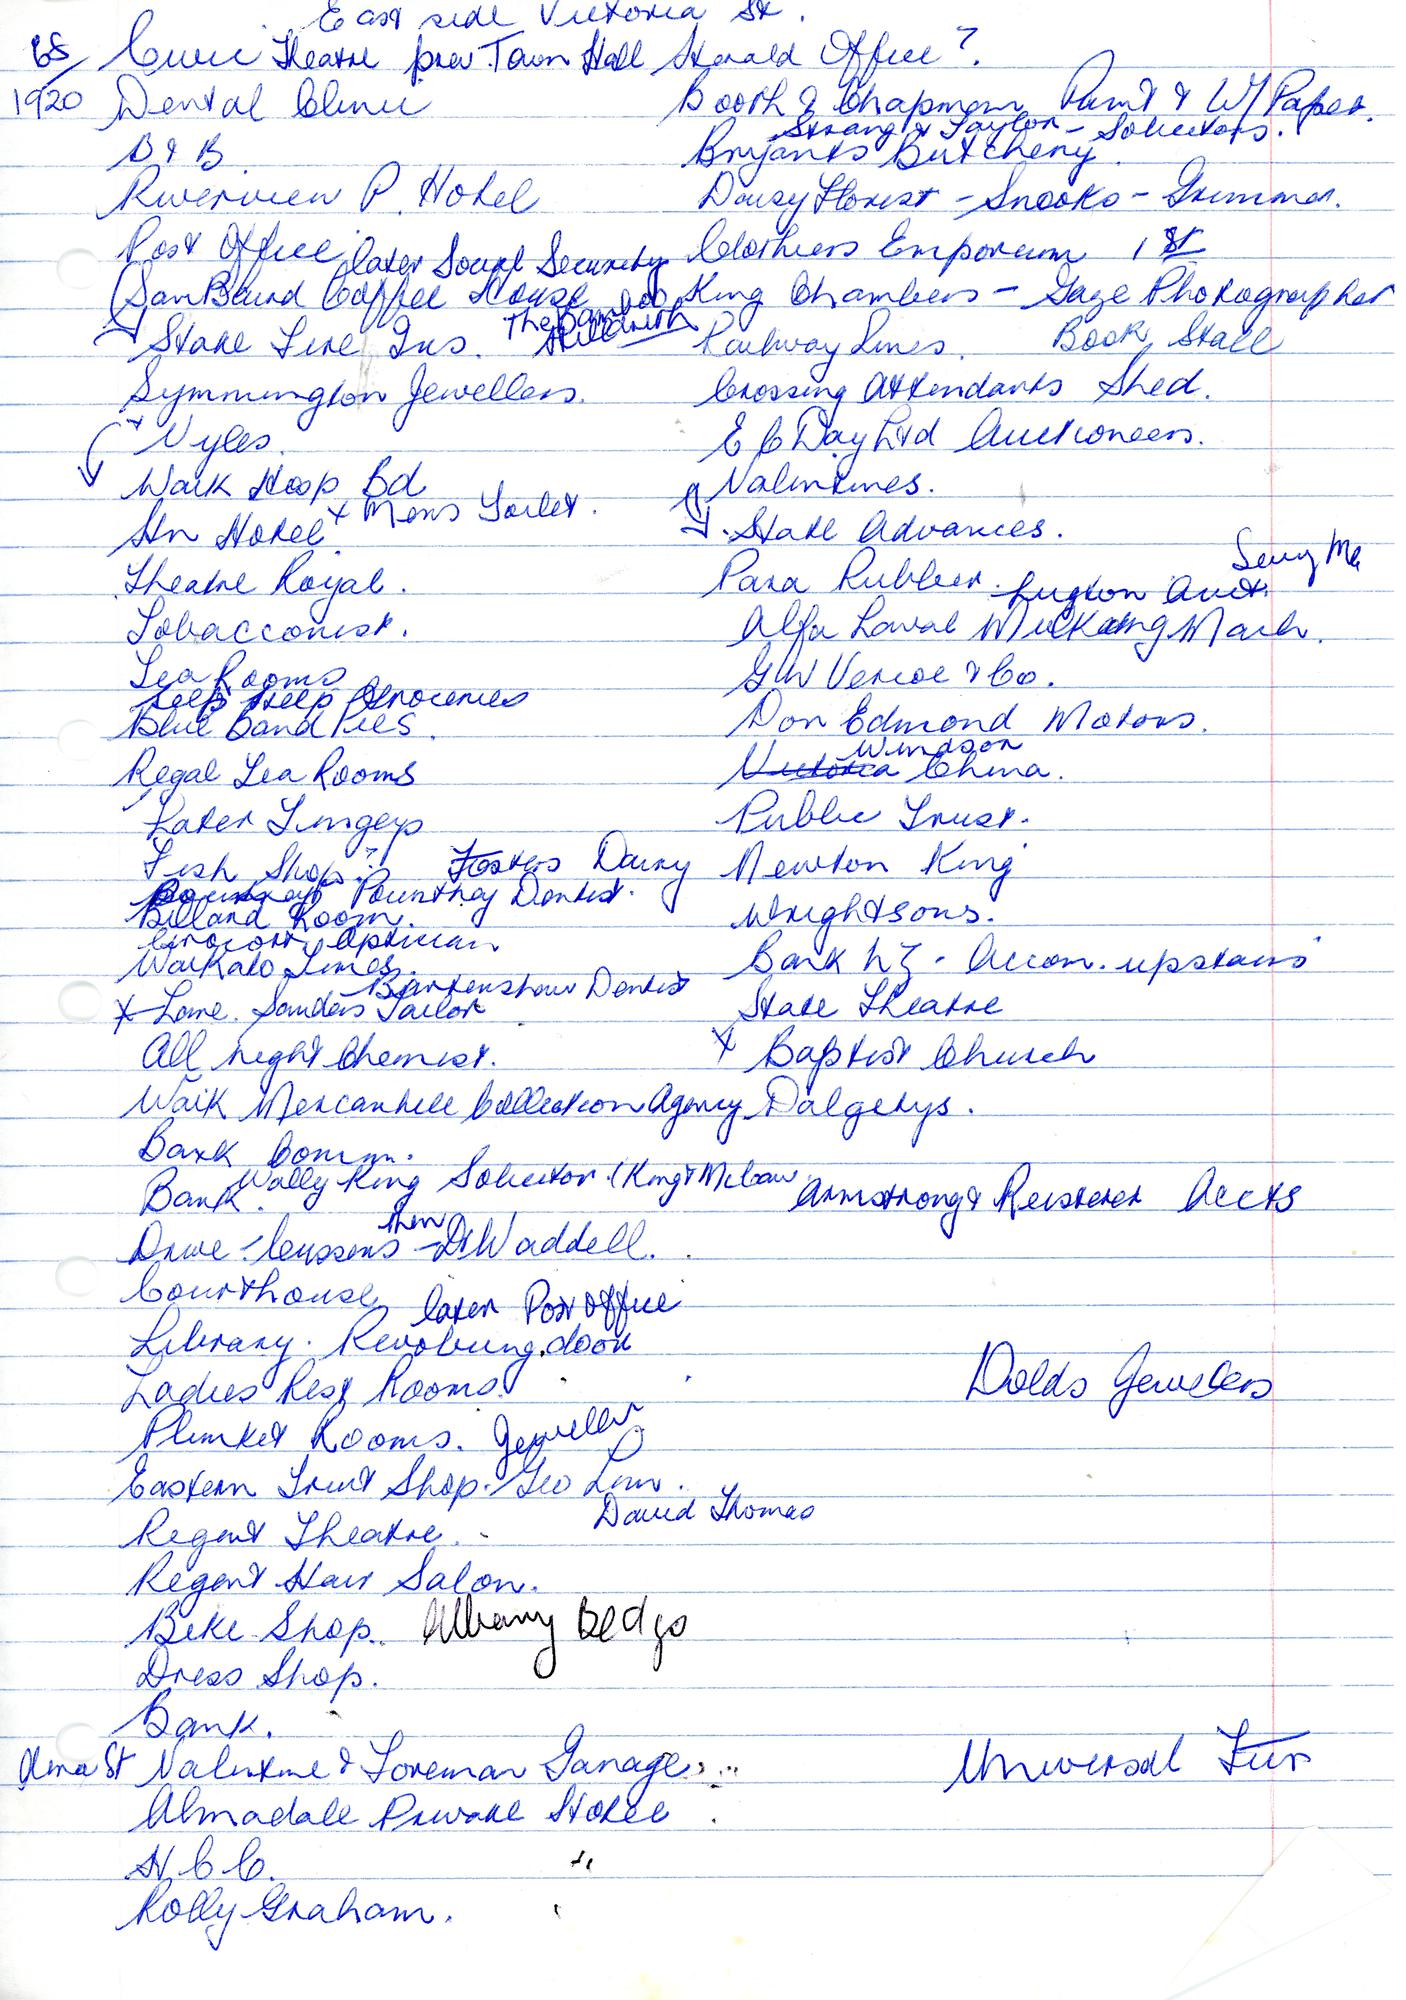 East side Victoria St.
65/ Civic Theatre prev Town Hall Herald Office?
1920 Dental Clinic
D & B
Riverview P. Hotel
Post Office later Social Security
(San Baird Coffee House The Bamboo
State Fire Ins.
Symmington Jewellers.
x Vyles.
Waik Hosp Bd
Hn Hotel x Mens Toilet.
Theatre Royal.
Tobacconist.
Tea Rooms
Blue Band Pies.
Regal Tea Rooms
Later Tingeys
Fish Shop? Fosters Dairy
Pounthey Dentist.
Billard Room.
Crocort Optician
Waikato Times.
Birkenshaw Dentist
x Lane. Sanders Tailor
All night Chemist.
Waik Mercantile Collection Agency
Bank Comm.
Wally King Solicitor. (King & McCaw
Bank.
Drive - Cussens then - Dr Waddell.
Courthouse
later Post Office
Library. Revolving door
Ladies Rest Rooms.
Plunket Rooms. Jeweller
Eastern Fruit Shop. Geo Low.
David Thomas
Regent Theatre.
Regent Hair Salon.
Bike Shop. Albany Bldgs
Dress Shop.
Bank.
Alma St Valintine & Foreman Garage
Almadale Private Hotel
H.C.C.
Rolly Graham.
Booth & Chapman Paint & W/Paper.
Strang & Taylor - Solicitors.
Bryants Butchery.
Daisy Florist - Snooks - Grimmer.
Clothiers Emporium 1st
King Chambers - Gaze Photographer
Railway Lines. Book Stall
Crossing Attendants Shed.
E C Day Ltd Auctioneers.
Valintines.
State Advances.
Para Rubber. Lugton Auct. Sewg Ma
Alfa Laval Milking Mach.
G W Vercoe & Co.
Don Edmond Motors.
Victoria Windsor China.
Public Trust.
Newton King
Wrightsons.
Bank NZ - Accom. upstairs
State Theatre
x Baptist Church
Dalgetys.
Armstrong & Reisterer Accts
Dolds Jewelers
Universal Fur